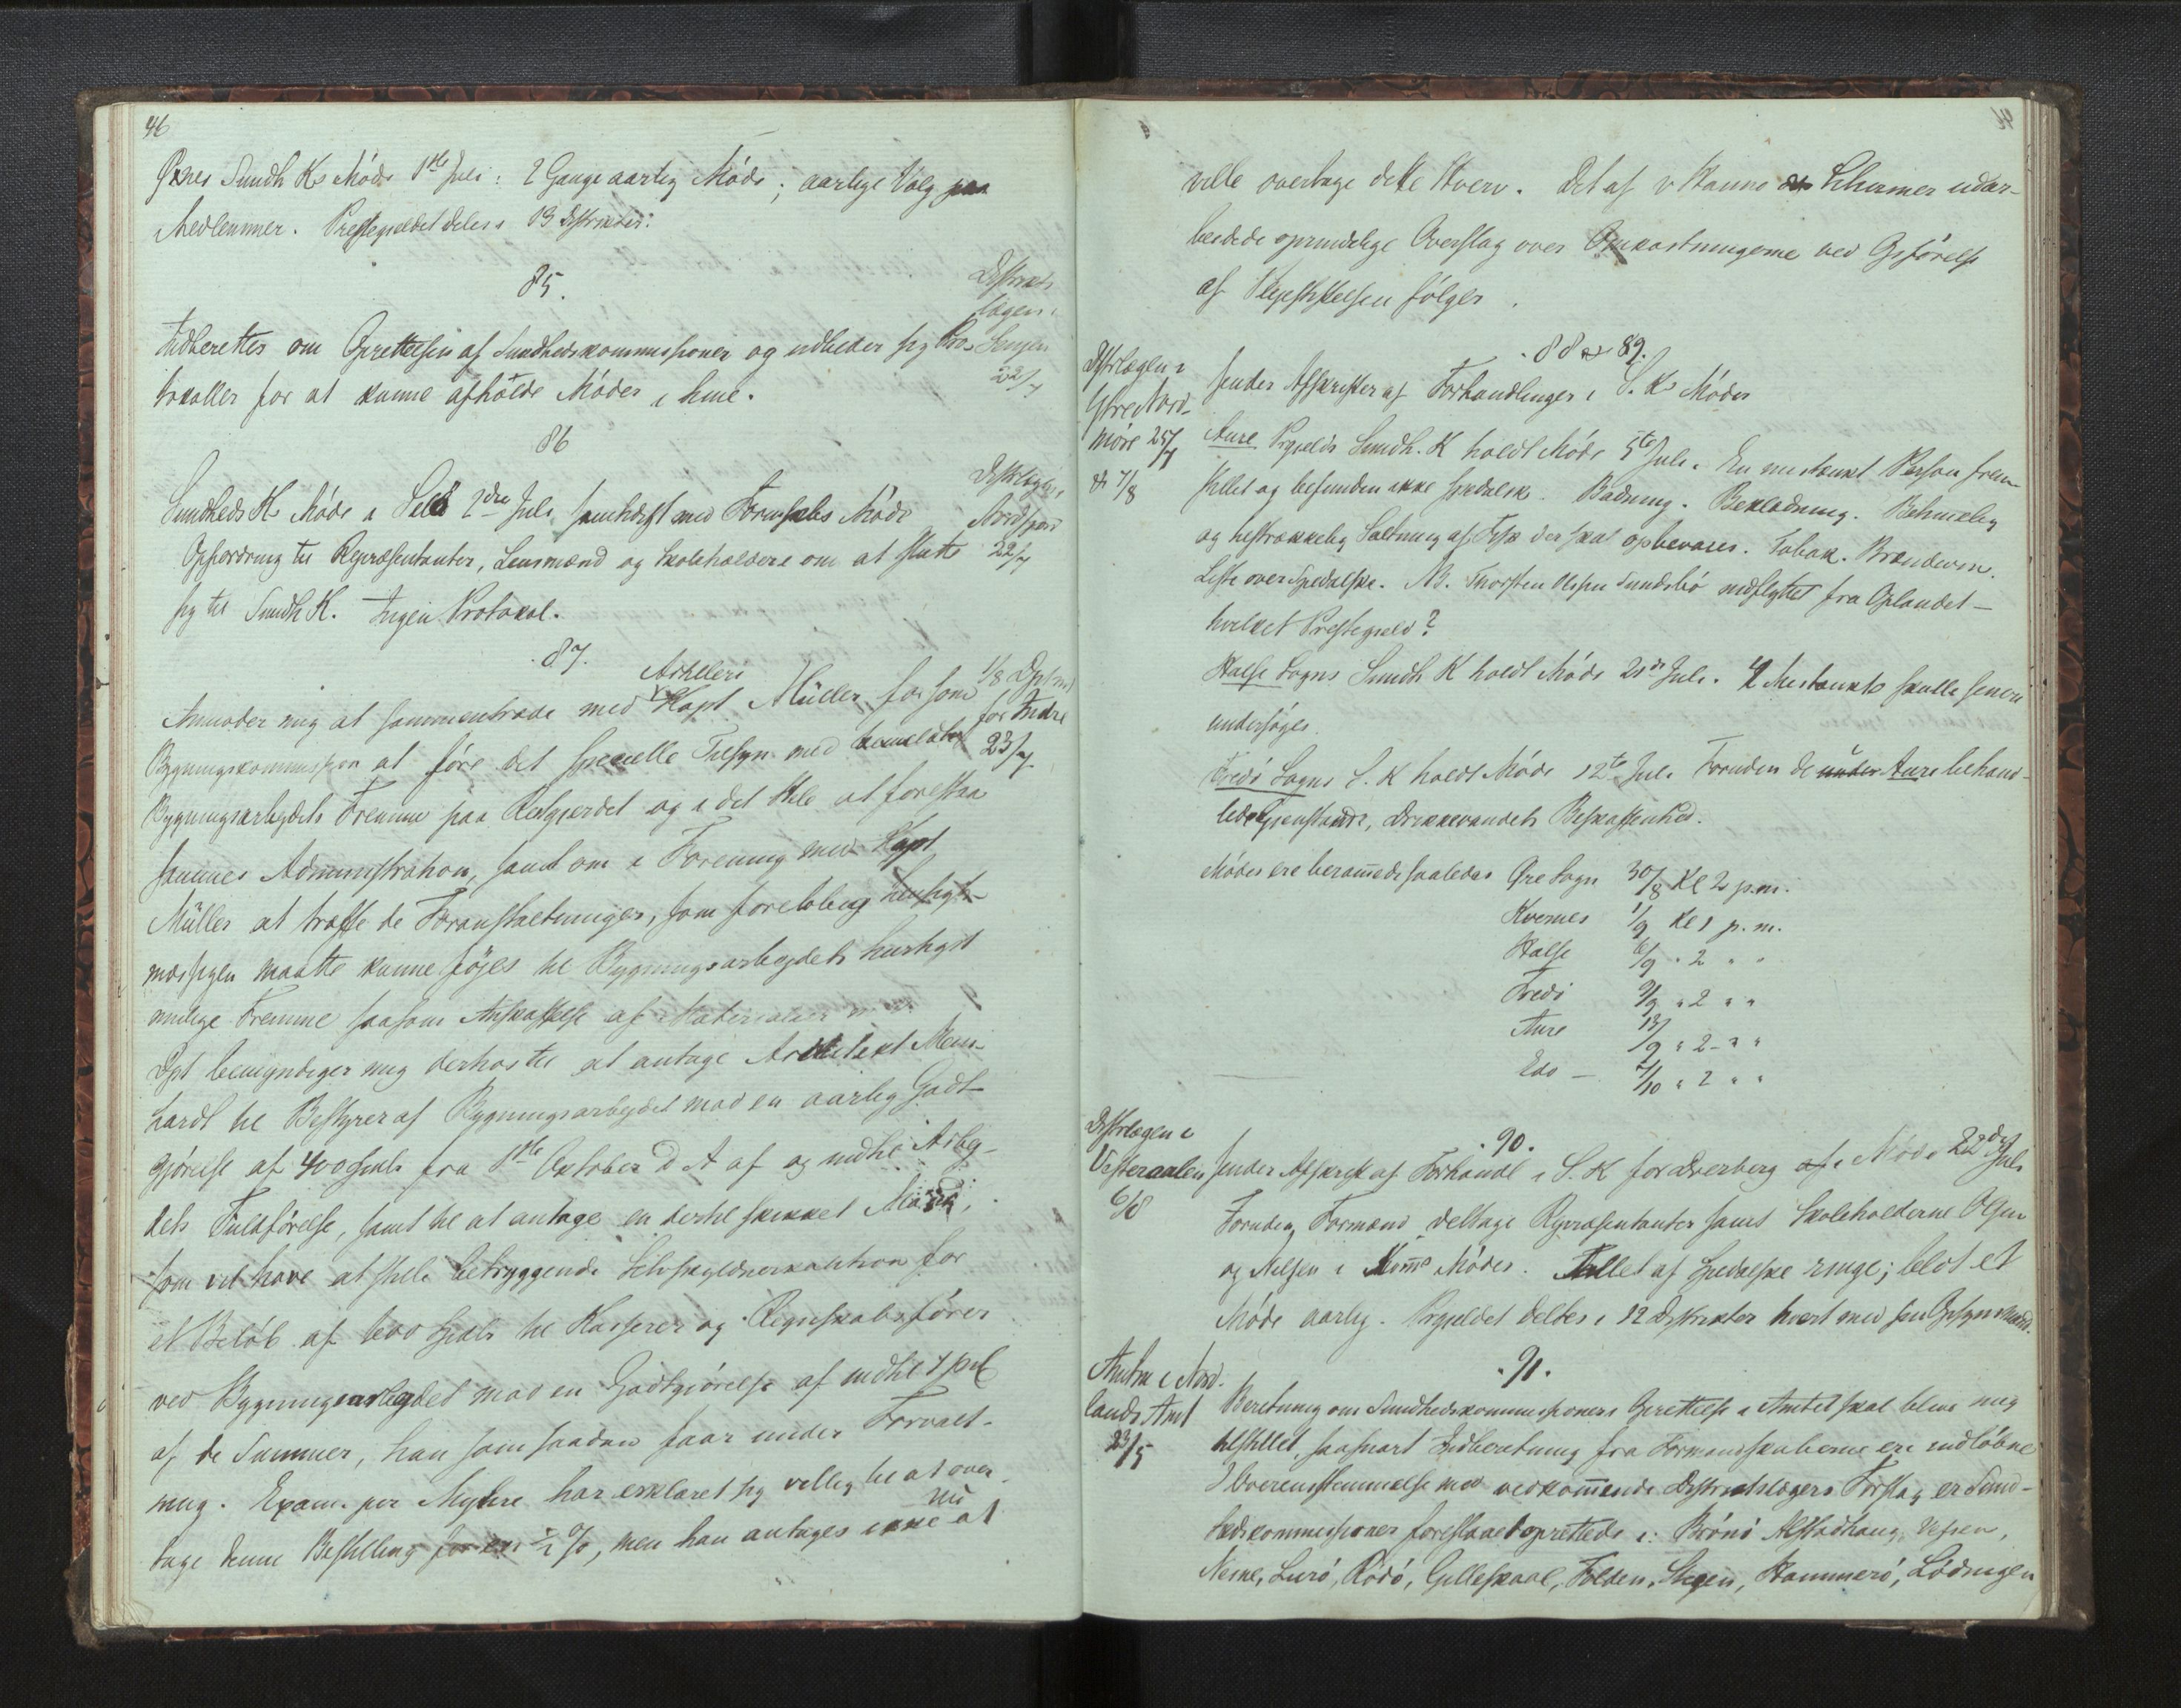 46
Øxnes Sundh Ks Møde 1ste Juli: 2 Gange aarlig Møde; aarlige Valg paa
Medlemmer. Prestegjeldet deles i 13 Distrikter.
85.
Distrikts
lægen i
Senjen
22/7
Indberettes om Oprettelsen af Sundhedskommissioner og udbeder sig Pro-
tokoller for at kunne afholde Møder i hine.
86
Distrlægen i
Nordfjord
22/7
Sundheds Ks Møde i 2den Juli samtidigt med Formskbs Møde
Opfordring til Repræsentanter, Lensmænd og Skoleholdere om at slutte
sig til Sundh K. Ingen Protokol.
87.
1/8 Dptmt
for Indre
23/7
Artilleri
Anmoder mig at sammentræde med Kapt Müller for som
Bygningskommission at føre det specielle Tilsyn med
Bygningsarbejdets Fremme paa Reknjæerdet og i det Hele at forestaa
sammes Administration, samt om i Forening med Kapt
Müller at træffe de Foranstaltninger, som foreløbig hensigts-
mæssigen maatte kunne føjes til Bygningsarbejdets hurtigst
mulige Fremme saasom Anskaffelse af Materialier
Dpt bemyndiger mig derhos til at antage Arkitekt Mein-
hardt til Bestyrer af Bygningsarbejdet mod en aarlig Godt-
gjørelse af 400 Spdlr fra 1ste Oktober D A af og indtil Arbej-
dets Fuldførelse, samt til at antage en dertil skikket Mand,
som vil have at stille betryggende Selvskyldnerkaution for
et Beløb af 600 Spdlr til Kasserer og Regnskabsfører
ved Bygningsarbejdet mod en Godtgjørelse af indtil 1 pCt
af de Summer, han som saadan faar under Forvalt-
ning. Exam. jur Myhre har erklæret sig villig til at over-
tage denne Bestilling for en ½ %, men han antages ikke nu at
ville overtage dette Hverv. Det af v Hanno & Schirmer udar-
beidede oprindelige Overslag over Omkostningerne ved Opførelse
af Plejestiftelsen følger.
88 & 89.
Distrlægen i
Ytre Nord-
møre 25/7
& 7/8
sender Afskrifter af Forhandlinger i S. Ks Møder
Aure Prgjelds Sundh. K holdt Møde 5te Juli. En mistænkt Person frem-
stillet og befunden ikke spedalsk. Badning. Beklædning. Behørig
og tilstrækkelig Saltning af Fisk der skal opbevares. Tobak. Brændevin.
Liste over Spedalske. NB. Thorsten Olsen Sundsbø indflyttet fra Oplandet –
hvilket Prestegjeld?
Halse Sogns Sundh K holdt Møde 21de Juli. 2 Mistænkte skulle senere
undersøges.
Tredi Sogns S. K holdt Møde 12te Juli. Foruden de under Aure behand-
lede Gjenstande, Drikkevandets Beskaffenhed.
Møder ere beramede saaledes Øre Sogn 30/8 Kl 2 p.m.
Kvernes 1/9 Kl 1 p.m.
Halse 6/9 " 2 " "
Tredi 9/9 " 2 " "
Aure 13/9 " 2 " "
Edø – 4/10 " 2 " "
Distrlægen i
Vesteraalen
6/8
90.
sender Afskrift af Forhandl i S. K for Dverberg i Møde 22de Juli
Foruden Formænd deltage Repræsentanter samt Skoleholderne Olsen
og Nilsen i Komms Møder. Tallet af Spedalske ringe; blot et
Møde aarlig. Prgjeldet deltes i 12 Distrikter hvert med sin Opsynsmand.
Amtm i Nord-
lands Amt
23/5
91.
Beretning om Sundhedskommissioners Oprettelse i Amtet skal blive mig
tilstillet, saasnart Indberetning fra Formandskaberne ere indløbne
I Overensstemmelse med vedkommende Distriktslægers Forslag er Sund-
hedskommissioner foreslaaet oprettede i: Brønø Alstadhaug, Vefsen,
Nesne, Lurø, Rødø, Gilleskaal, Folden, Stegen, Hammerø, Lødingen